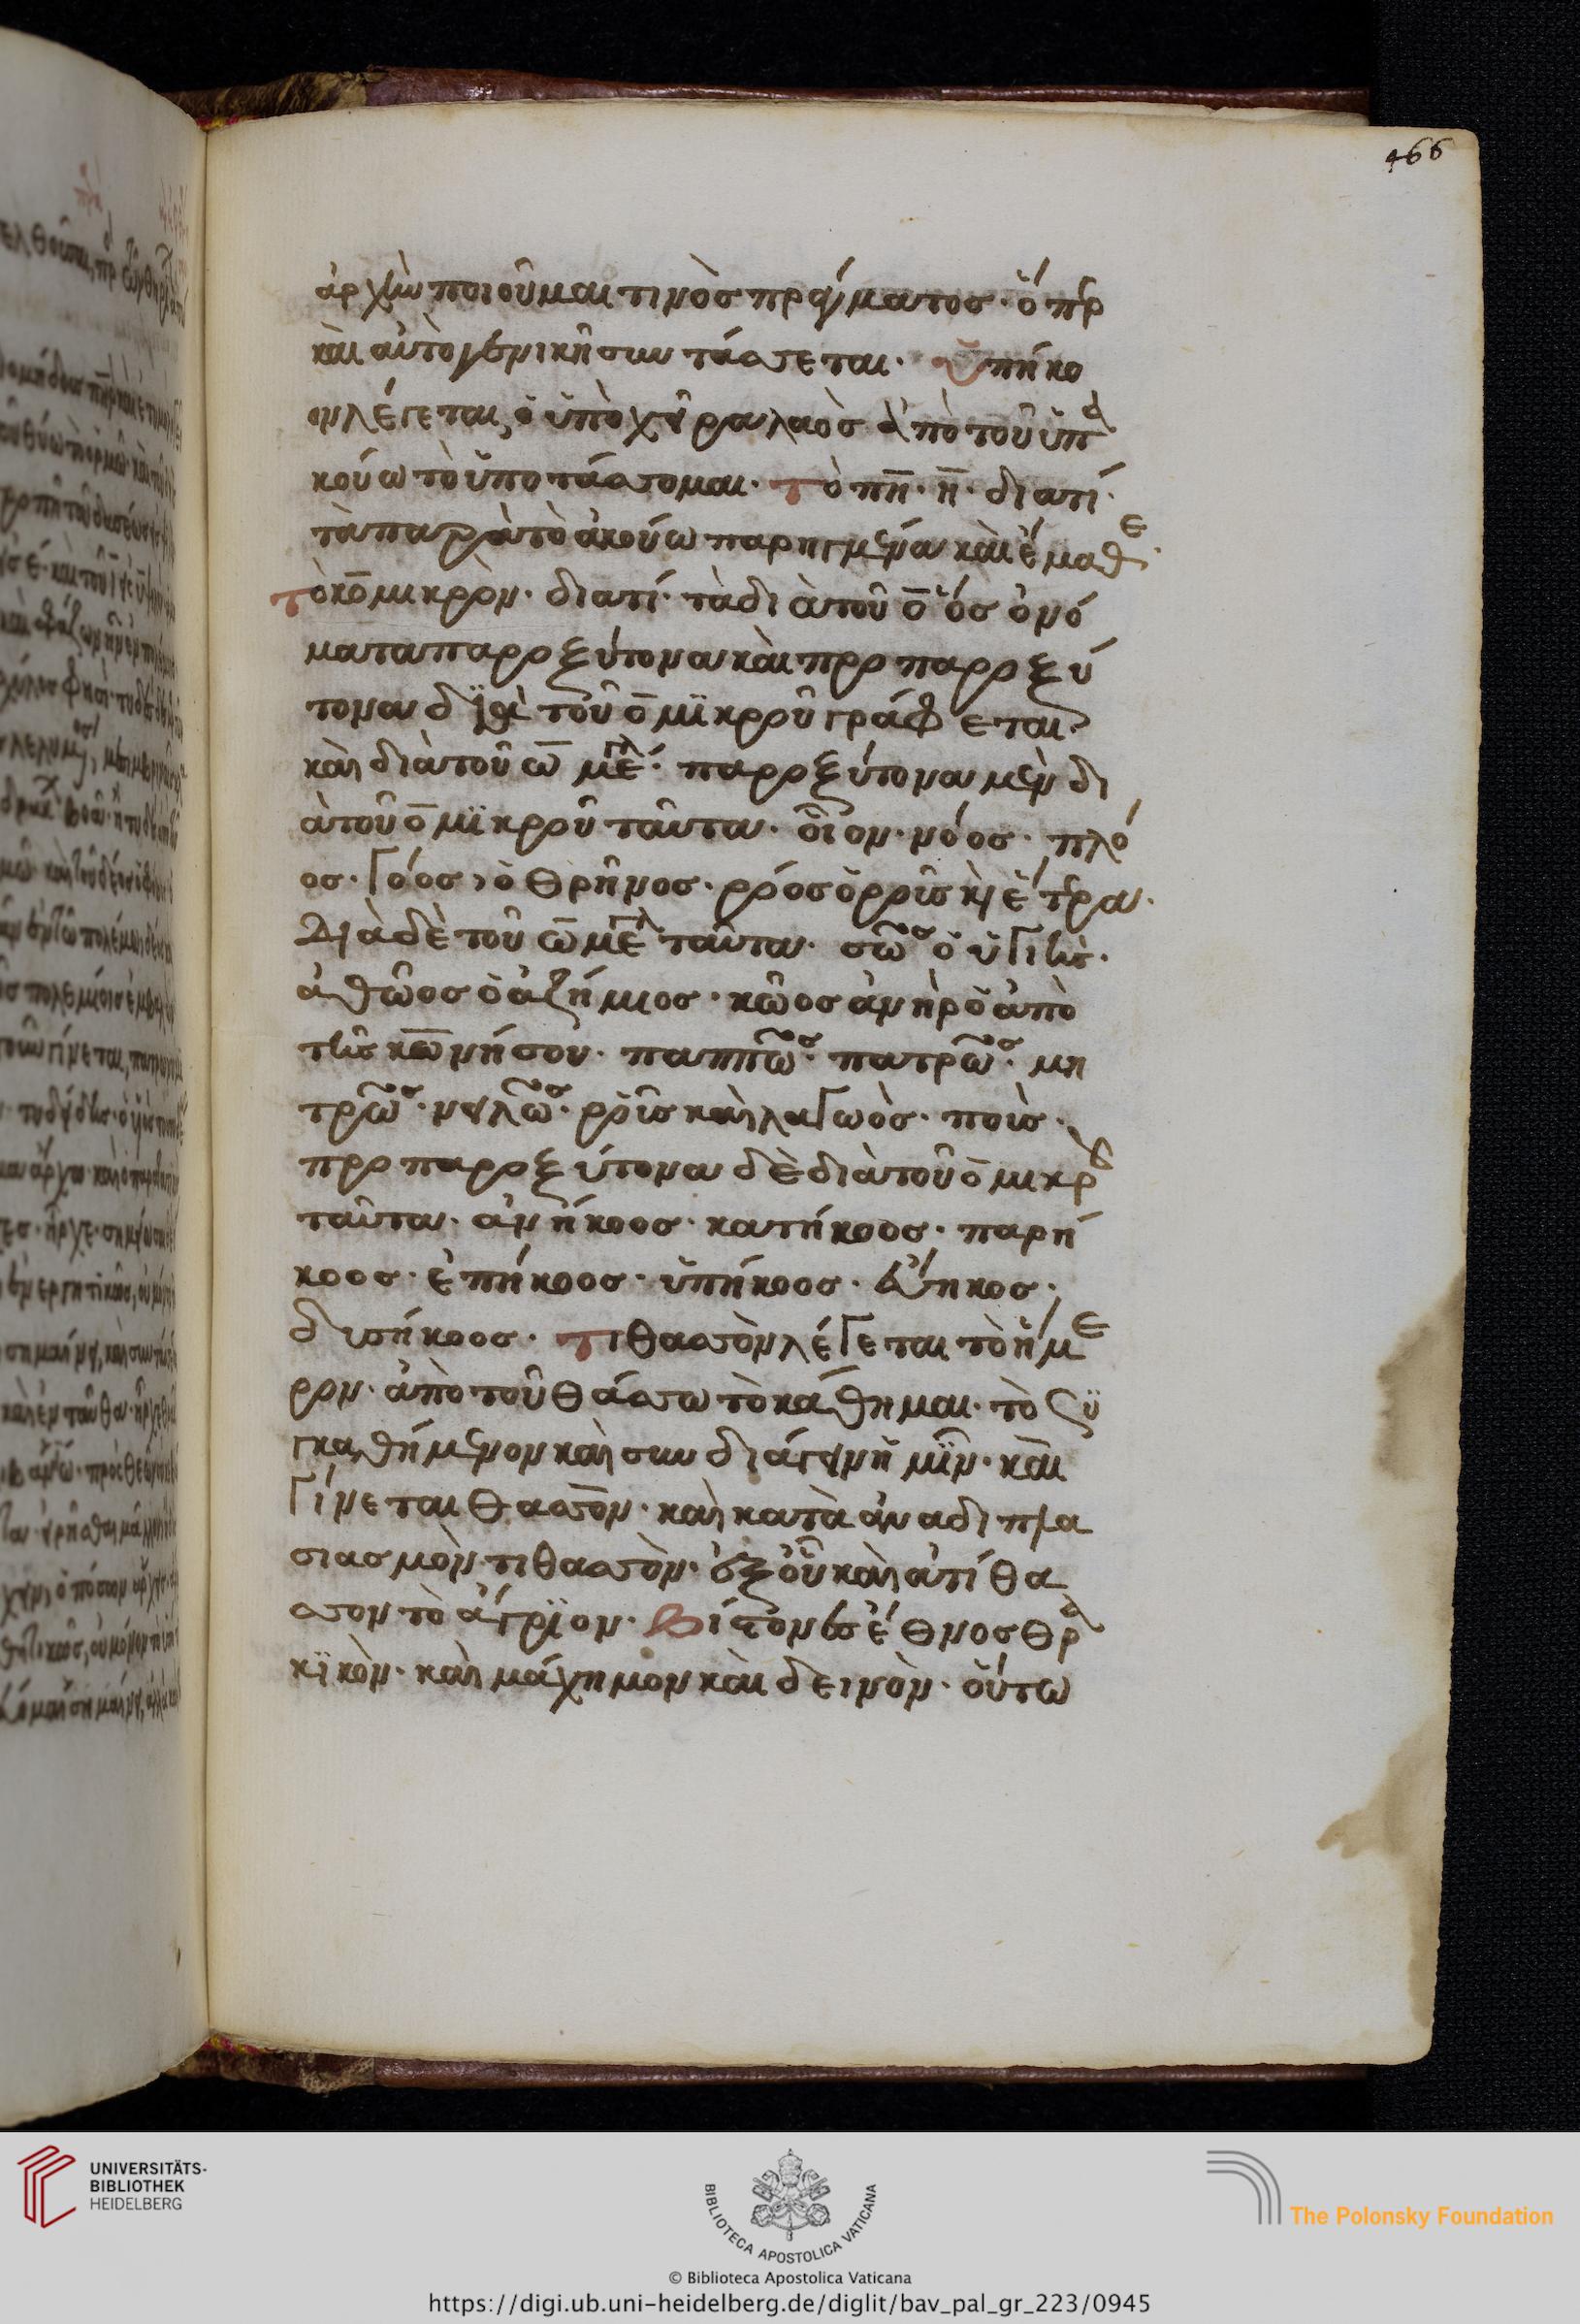 466
ἀρχὴν ποιοῦμαι τινὸς πράγματος· ὅπρ
καὶ αὐτὸ γενικῆ συντάσσεται· Ὑπήκο
ον λέγεται, ὁ ὑπὸ χεῖρα λαὸς ἀπὸ τοῦ ὑπα
κούω τὸ ὑποτάσσομαι· Τὸ πη̅· η̅· διατί·
τὰ παρὰ τὸ ἀκούω παρηγμένα καὶ ἔμαθε·
Τὸ κο̅ μικρὸν· διατί· τὰ διὰ τοῦ ο̅ος ὀνό
ματα παροξύτονα καὶ προπαροξύ
τονα διὰ τοῦ ο̅ μϊκροῦ γράφεται
καὶ διὰ τοῦ ω̅ μεγ· παροξύτονα μὲν δι
ὰ τοῦ ο̅ μϊκροῦ ταῦτα· οἷον· νόος· πλό
ος· γόος, ὁ θρῆνος· ρόος ὁ ροῦς κὶ ἕτρα·
Διὰ δὲ τοῦ ω̅ μεγλ ταῦτα· σῶος ὁ ὑγιὴς·
ἀθῶος ὁ ἀζήμιος· κῶος ἀνὴρ ὁ ἀπὸ
τῆς κῶ νήσου· παππῶος· πατρῶος· μη
τρῶος· νειλῶος· ροῖς καὶ λαγωὸς· ποιὸς·
προπαροξύτονα δὲ διὰ τοῦ ο̅ μικροῦ
ταῦτα· ἀνήκοος· κατήκοος· παρή
κοος· ἐπήκοος· ὑπήκοος· εὐήκοος·
δισήκοος· Τιθασσὸν λέγεται τὸ ἥμε
ρον· ἀπὸ τοῦ θάσσω τὸ κάθημαι· τὸ συ
γκαθήμενον καὶ συνδιάγειν ἡμῖν· καὶ
γίνεται θασσὸν· καὶ κατὰ ἀναδιπλα
σιασμὸν τιθασσὸν· ἐξ οὗ καὶ ἀτίθα
σσον τὸ ἄγριον· Βίστονες ἔθνος θρα
κϊκὸν· καὶ μάχημον καὶ δεινὸν· οὕτω
UNIVERSITÄTS-
BIBLIOTHEK
HEIDELBERG
BIBLIOTECA APOSTOLICA VATICANA
The Polonsky Foundation
© Biblioteca Apostolica Vaticana
https://digi.ub.uni-heidelberg.de/diglit/bav_pal_gr_223/0945